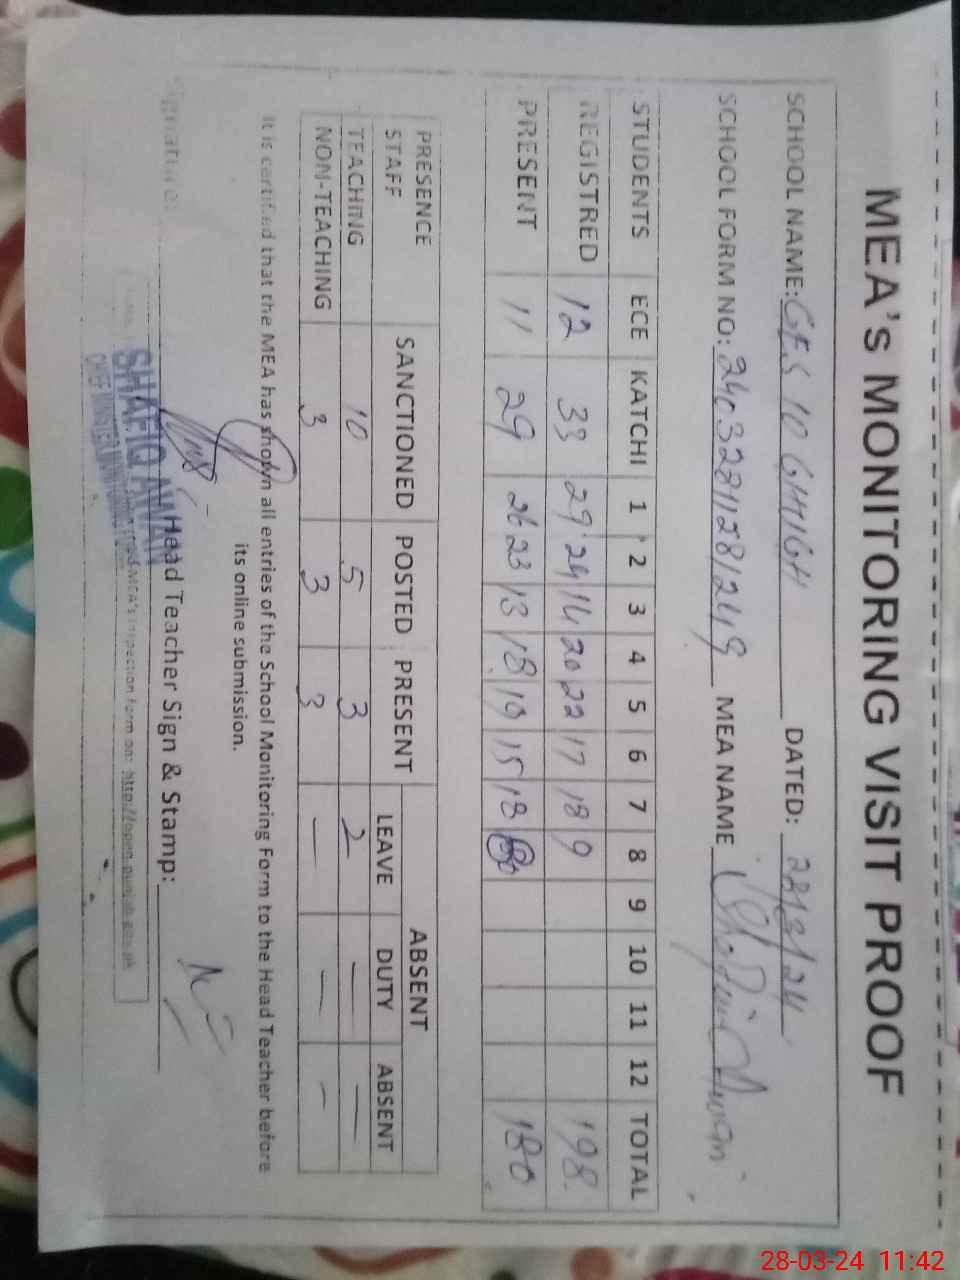 MEA'S MONITORING VISIT PROOF
SCHOOL NAME: GES 10 GHIGH DATED: 28/3/24
SCHOOL FORM NO: 24032811281249 MEA NAME Awan
STUDENTS ECE KATCHI 1 2 3 4 5 6 7 8 9 10 11 12 TOTAL
REGISTRED 12 33 29 24 14 20 22 17 18 9 198
PRESENT 11 29 26 23 13 18 19 15 18 180
PRESENCE SANCTIONED POSTED PRESENT ABSENT
STAFF LEAVE DUTY ABSENT
TEACHING 10 5 3 2 — —
NON-TEACHING 3 3 3 — — —
It is certified that the MEA has shown all entries of the School Monitoring Form to the Head Teacher before
its online submission.
Signature: Head Teacher Sign & Stamp:
SHAFIQ AWAN
MEA's Inspection Form on: http://open.punjab.gov.pk
28-03-24 11:42